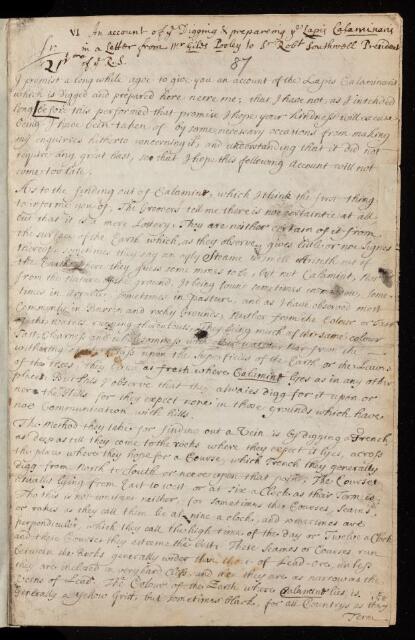 VI An account of ye Digging & preparing ye Lapis Calaminaris
in a Letter from Mr Giles Pooley to Sr Robt Southwell President
of ye R.S.
Sr
87
I promist a long while agoe to give you an account of the Lapis Calaminaris
which is digged and prepared here neere me; that I have not, as I intended
long before this performed that promise I hope your kindness will excuse
being I have been taken of by some necessary occations from making
my enquiries hitherto concerning it; and understanding that it did not
require any great hast, so that I hope this following Account will not
come too late.
As to the finding out of Calamine, which I think the first thing
to informe you of, The Groovers tell me there is noe certaintie at all
but that it is a mere Lottery, They are neither certain of it from
the surface of the Earth which, as they observe, gives little or noe Signes
thereof, sometimes they say an ugly Steame will Arise out of
the where they guess some mines to be, but not Calamine, Nor
from the nature of the ground, It being found sometimes some-
times in Arrable, sometimes in pasture, and as I have observed most
Commonly in Barren and rocky Grounds, Neither from the Colour or Tast
of the Waters running thereabouts, they being much of the same colour
Tast, Clearness and wholsomness with other waters, Nor from the
withering Grass upon the Superficies of the Earth or the Leaves
of the trees, they being as fresh where Calamine lyes as in any other
places. But this I observe that they alwaies digg for it upon or
nere the Hills for they expect none in those grounds which have
noe Communication with hills.
The Method they take for finding out a Vein is by digging a Trench
as deep as till they come to the rocks where they expect it lyes, across
the place where they hope for a Course, which Trench they generally
digg from North to South or neere upon that point, The Courses
usually lying from East to West or at six a Clock as their Term is;
Tho this is not constant neither, for sometimes the Courses, Seams
or rakes as they call them lie at nine a clock, and sometimes are
perpendicular, which they call the high times of the day or Twelve a Clock
and these Courses they esteeme the best. These Seames or Courses run
between the Rocks generally wider than those of Lead-ore, unless
they are inclosed in very hard Cliffs, and then they are as narrow as the
Veins of Lead. The Colour of the Earth where Calamine lies is
generally a yellow Grit, but sometimes black, for all Countrys as they
Term